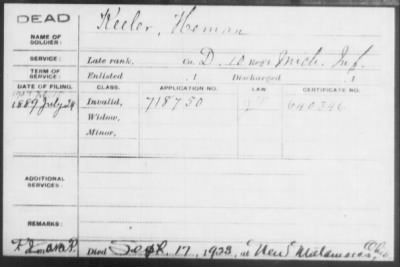 DEAD
NAME OF SOLDIER: Keeler, Homan
SERVICE: Late rank, Co. D. 10 Reg't Mich. Inf.
TERM OF SERVICE: Enlisted , 1 Discharged , 1
DATE OF FILING. CLASS. APPLICATION NO. LAW CERTIFICATE NO.
1889 July 29 Invalid, 718750 640346
Widow,
Minor,
ADDITIONAL SERVICES:
REMARKS:
Died Sept. 17, 1923, at New